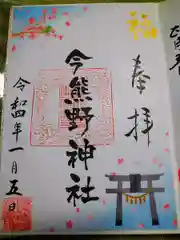 奉拝
福
今熊野神社
令和四年一月五日